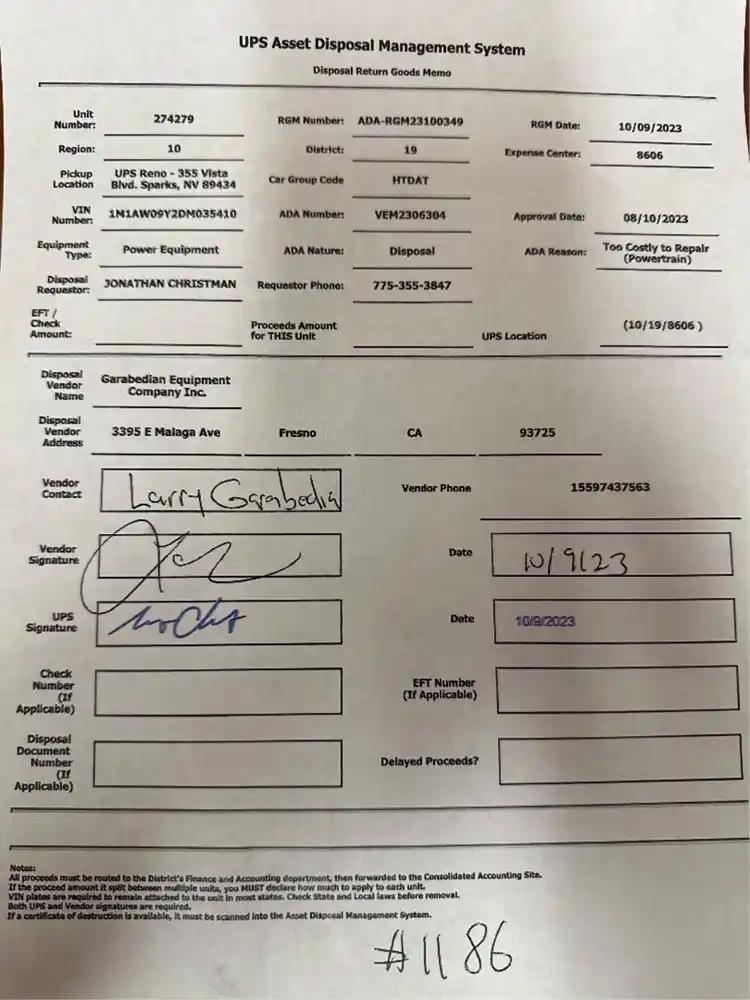 UPS Asset Disposal Management System
Disposal Return Goods Memo
Unit Number: 274279 RGM Number: ADA-RGM23100349 RGM Date: 10/09/2023
Region: 10 District: 19 Expense Center: 8606
Pickup Location UPS Reno - 355 Vista Blvd. Sparks, NV 89434 Car Group Code HTDAT
VIN Number: 1M1AW09Y2DM035410 ADA Number: VEM2306304 Approval Date: 08/10/2023
Equipment Type: Power Equipment ADA Nature: Disposal ADA Reason: Too Costly to Repair (Powertrain)
Disposal Requestor: JONATHAN CHRISTMAN Requestor Phone: 775-355-3847
EFT / Check Amount: Proceeds Amount for THIS Unit UPS Location (10/19/8606 )
Disposal Vendor Name Garabedian Equipment Company Inc.
Disposal Vendor Address 3395 E Malaga Ave Fresno CA 93725
Vendor Contact Larry Garabedia Vendor Phone 15597437563
Vendor Signature Date 10/9/23
UPS Signature Date 10/9/2023
Check Number (If Applicable) EFT Number (If Applicable)
Disposal Document Number (If Applicable) Delayed Proceeds?
Notes:
All proceeds must be routed to the District's Finance and Accounting department, then forwarded to the Consolidated Accounting Site.
If the proceed amount it split between multiple units, you MUST declare how much to apply to each unit.
VIN plates are required to remain attached to the unit in most states. Check State and Local laws before removal.
Both UPS and Vendor signatures are required.
If a certificate of destruction is available, it must be scanned into the Asset Disposal Management System.
#1186